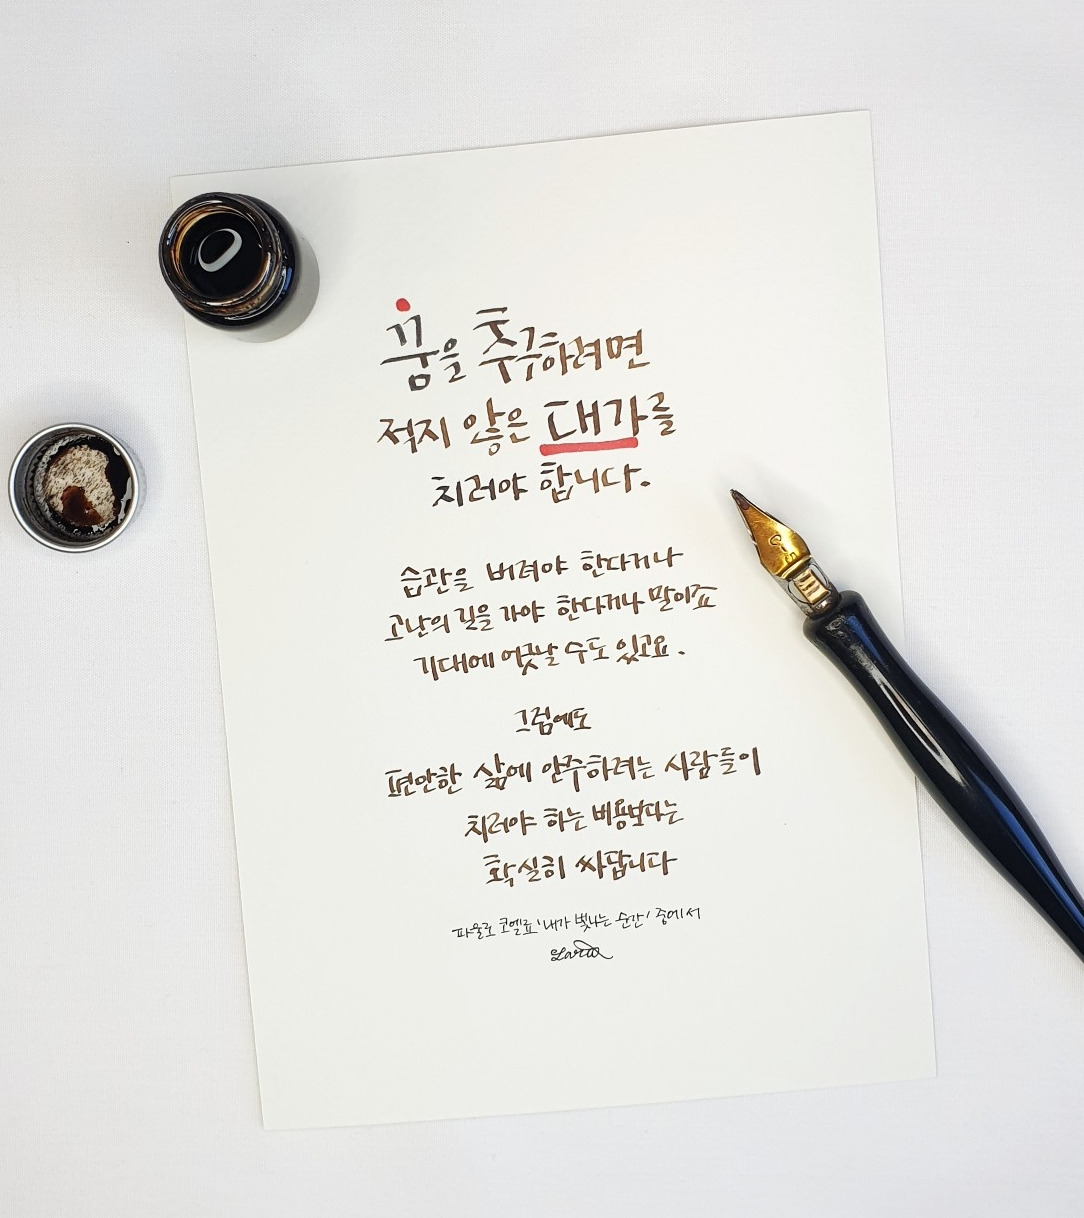 꿈을 추구하려면
적지 않은 대가를
치러야 합니다.
습관을 버려야 한다거나
고난의 길을 가야 한다거나 말이죠
기대에 어긋날 수도 있고요.
그럼에도
편안한 삶에 안주하려는 사람들이
치러야 하는 비용보다는
확실히 싸답니다
파울로 코엘료 '내가 빛나는 순간' 중에서